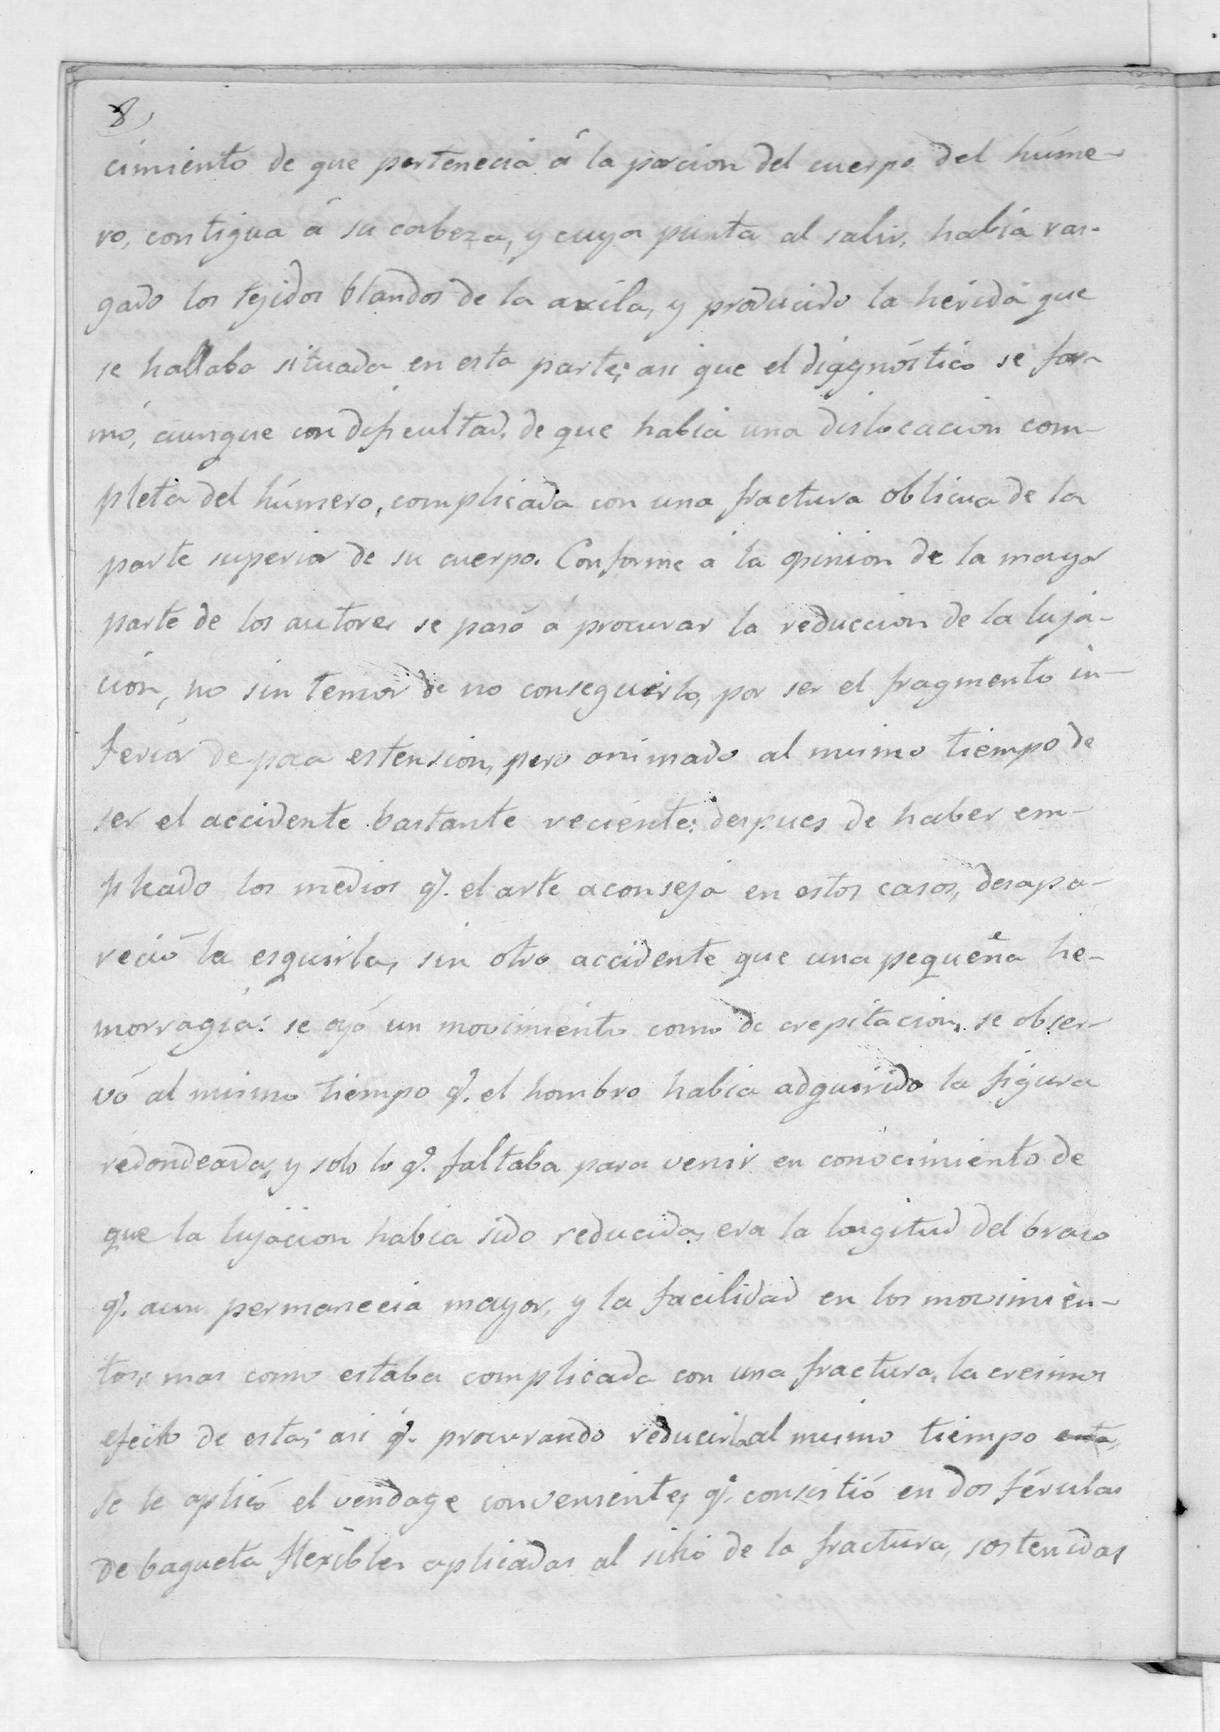 8)
cimiento de que pertenecia á la porcion del cuerpo del húme-
ro, contigua á su cabeza, y cuya punta al salir, habia ras-
gado los tejidos blandos de la axila, y producido la herida que
se hallaba situada en esta parte; asi que el diagnóstico se for-
mó, aunque con dificultad, de que habia una dislocacion com-
pleta del húmero, complicada con una fractura oblicua de la
parte superior de su cuerpo. Conforme á la opinion de la mayor
parte de los autores se pasó á procurar la reduccion de la luja-
cion, no sin temor de no conseguirlo, por ser el fragmento in-
ferior de poca estension, pero animado al mismo tiempo de
ser el accidente bastante reciente: despues de haber em-
pleado los medios q.e el arte aconseja en estos casos, desapa-
reció la esquirla, sin otro accidente que una pequeña he-
morragia: se oyó un movimiento como de crepitacion, se obser-
vó al mismo tiempo q.e el hombro habia adquirido la figura
redondeada, y solo lo q.e faltaba para venir en conocimiento de
que la lujacion habia sido reducida, era la longitud del brazo
q.e aun permanecia mayor, y la facilidad en los movimien-
tos; mas como estaba complicada con una fractura, la creimos
efecto de esta; asi q.e procurando reducirla al mismo tiempo
se le aplicó el vendage conveniente, q.e consistió en dos férulas
de baqueta flexibles aplicadas al sitio de la fractura, sostenidas